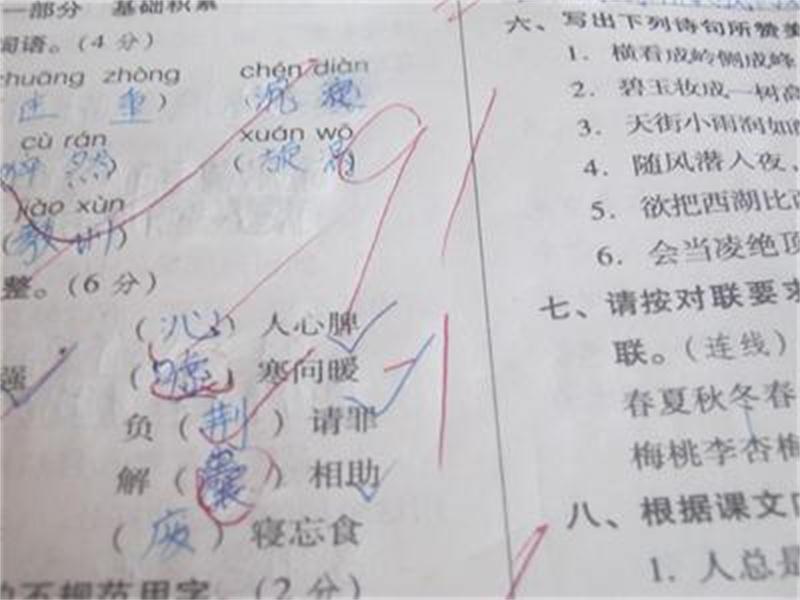 一部分 基础积累
词语。(4分)
chuāng zhòng chén diàn
重) (沉
cù rán xuán wō
然) (旋涡
jiào xùn
(教训)
整。(6分)
(沁) 人心脾
强 (嘘) 寒问暖
负(荆)请罪
解(囊)相助
(废)寝忘食
不规范用字。(2分)
91
-1
六、写出下列诗句所赞美
1. 横看成岭侧成峰
2. 碧玉妆成一树高
3. 天街小雨润如酥
4. 随风潜入夜、
5. 欲把西湖比西
6. 会当凌绝顶
七、请按对联要求
联。(连线)
春夏秋冬春
梅桃李杏梅
八、根据课文内
1. 人总是